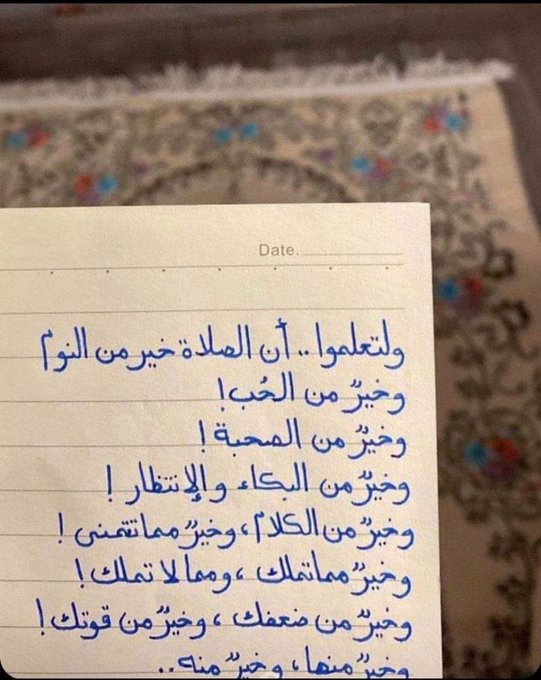 Date.
ولتعلموا .. أن الصلاة خير من النوم
وخيرٌ من الحُب!
وخيرٌ من الصحبة!
وخيرٌ من البكاء والإنتظار!
وخيرٌ من الكلام، وخيرٌ مما تتمنى!
وخيرٌ مما تملك، ومما لا تملك!
وخيرٌ من ضعفك، وخيرٌ من قوتك!
وخيرٌ منها، وخيرٌ منه..